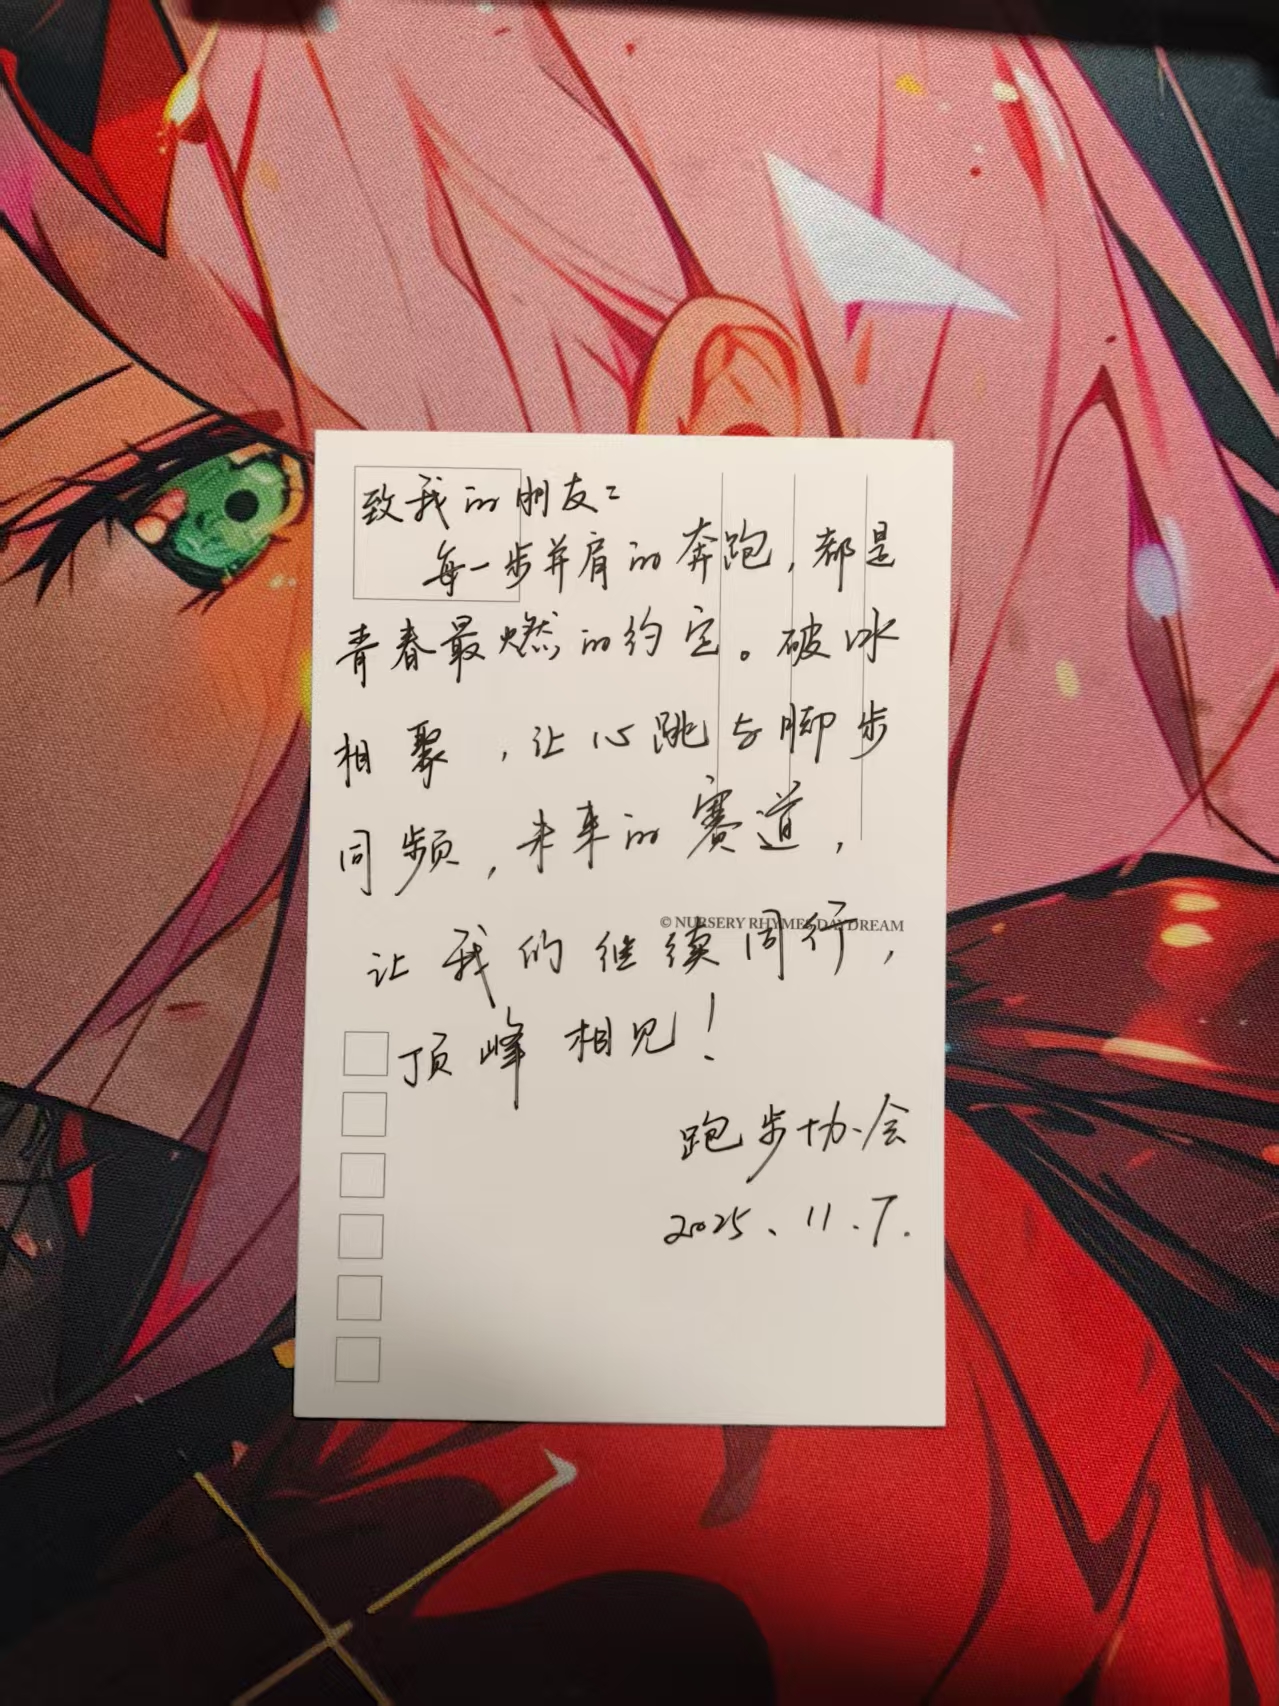 致我的朋友:
每一步并肩的奔跑,都是
青春最燃的约定。破冰
相聚,让心跳与脚步
同频,未来的赛道,
© NURSERY RHYMES DAYDREAM
让我们继续同行,
顶峰相见!
跑步协会
2025、11.7.